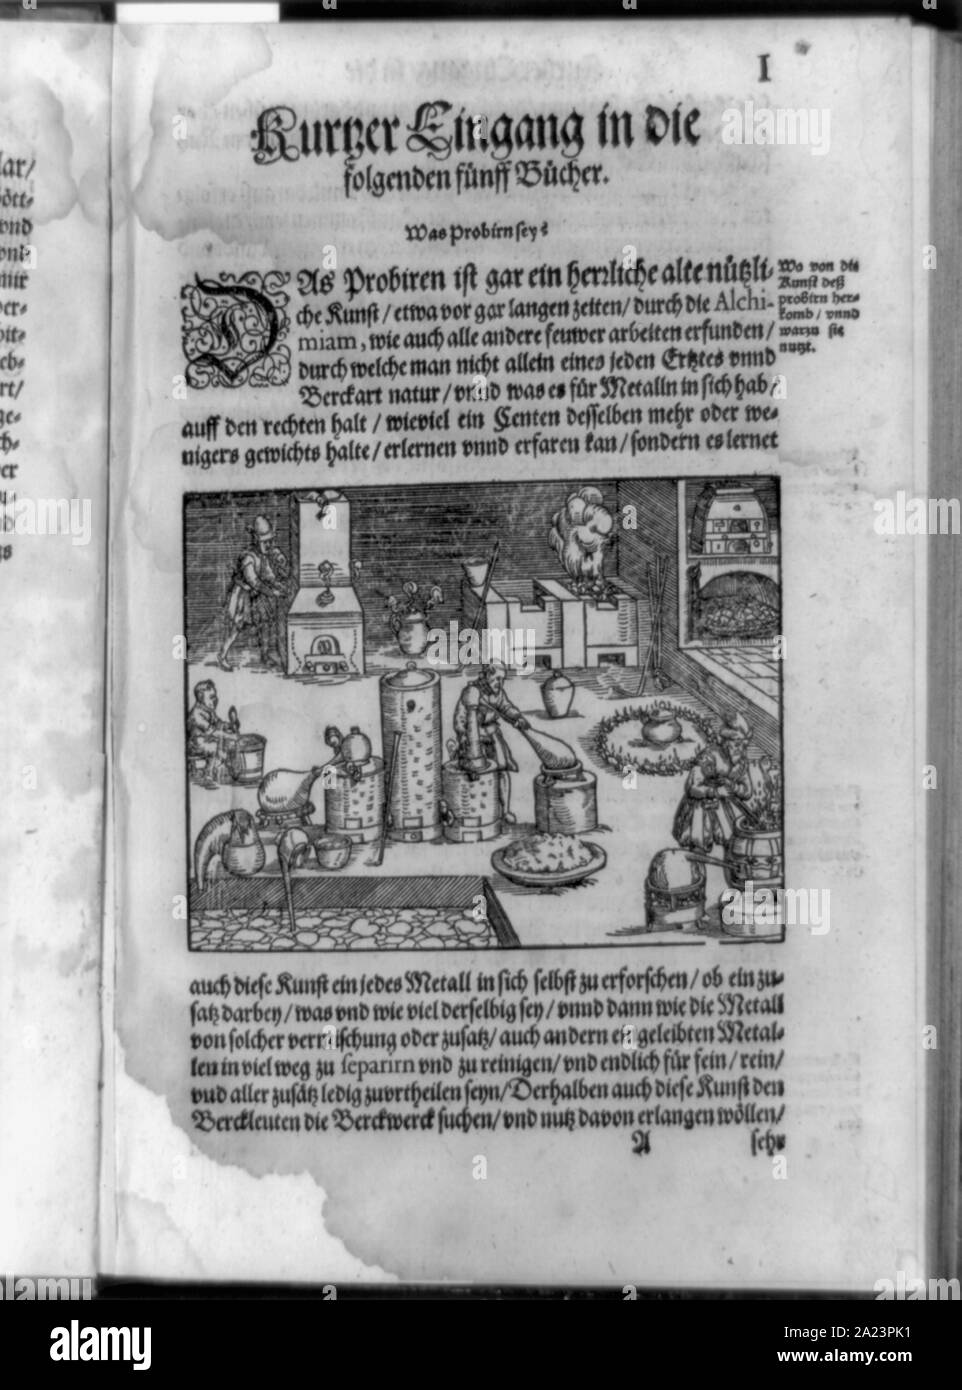 I
Kurtzer Eingang in die
folgenden fünff Bücher.
Was Probirn sey?
DAs Probiren ist gar ein herzliche alte nützli-
che Kunst / etwa vor gar langen zeiten / durch die Alchi-
miam, wie auch alle andere feuwer arbeiten erfunden /
durch welche man nicht allein eines jeden Ertztes vnnd
Berckart natur / vnnd was es für Metalln in sich hab /
auff den rechten halt / wieviel ein Centen desselben mehr oder we-
nigers gewichts halte / erlernen vnnd erfaren kan / sondern es lernet
Wo von die
Kunst deß
probirn her-
komb / vnnd
warzu sie
nutzt.
auch diese Kunst ein jedes Metall in sich selbst zu erforschen / ob ein zu-
satz darbey / was vnd wie viel derselbig sey / vnnd dann wie die Metall
von solcher vermischung oder zusatz / auch andern eingeleibten Metal-
len in viel weg zu separirn vnd zu reinigen / vnd endlich für fein / rein /
vnd aller zusätz ledig zuvrtheilen seyn / Derhalben auch diese Kunst den
Berckleuten die Berckwerck suchen / vnd nutz davon erlangen wöllen /
A sehr
lar /
vnd
mir
rt /
alamy
Image ID: A23PK1
www.alamy.com